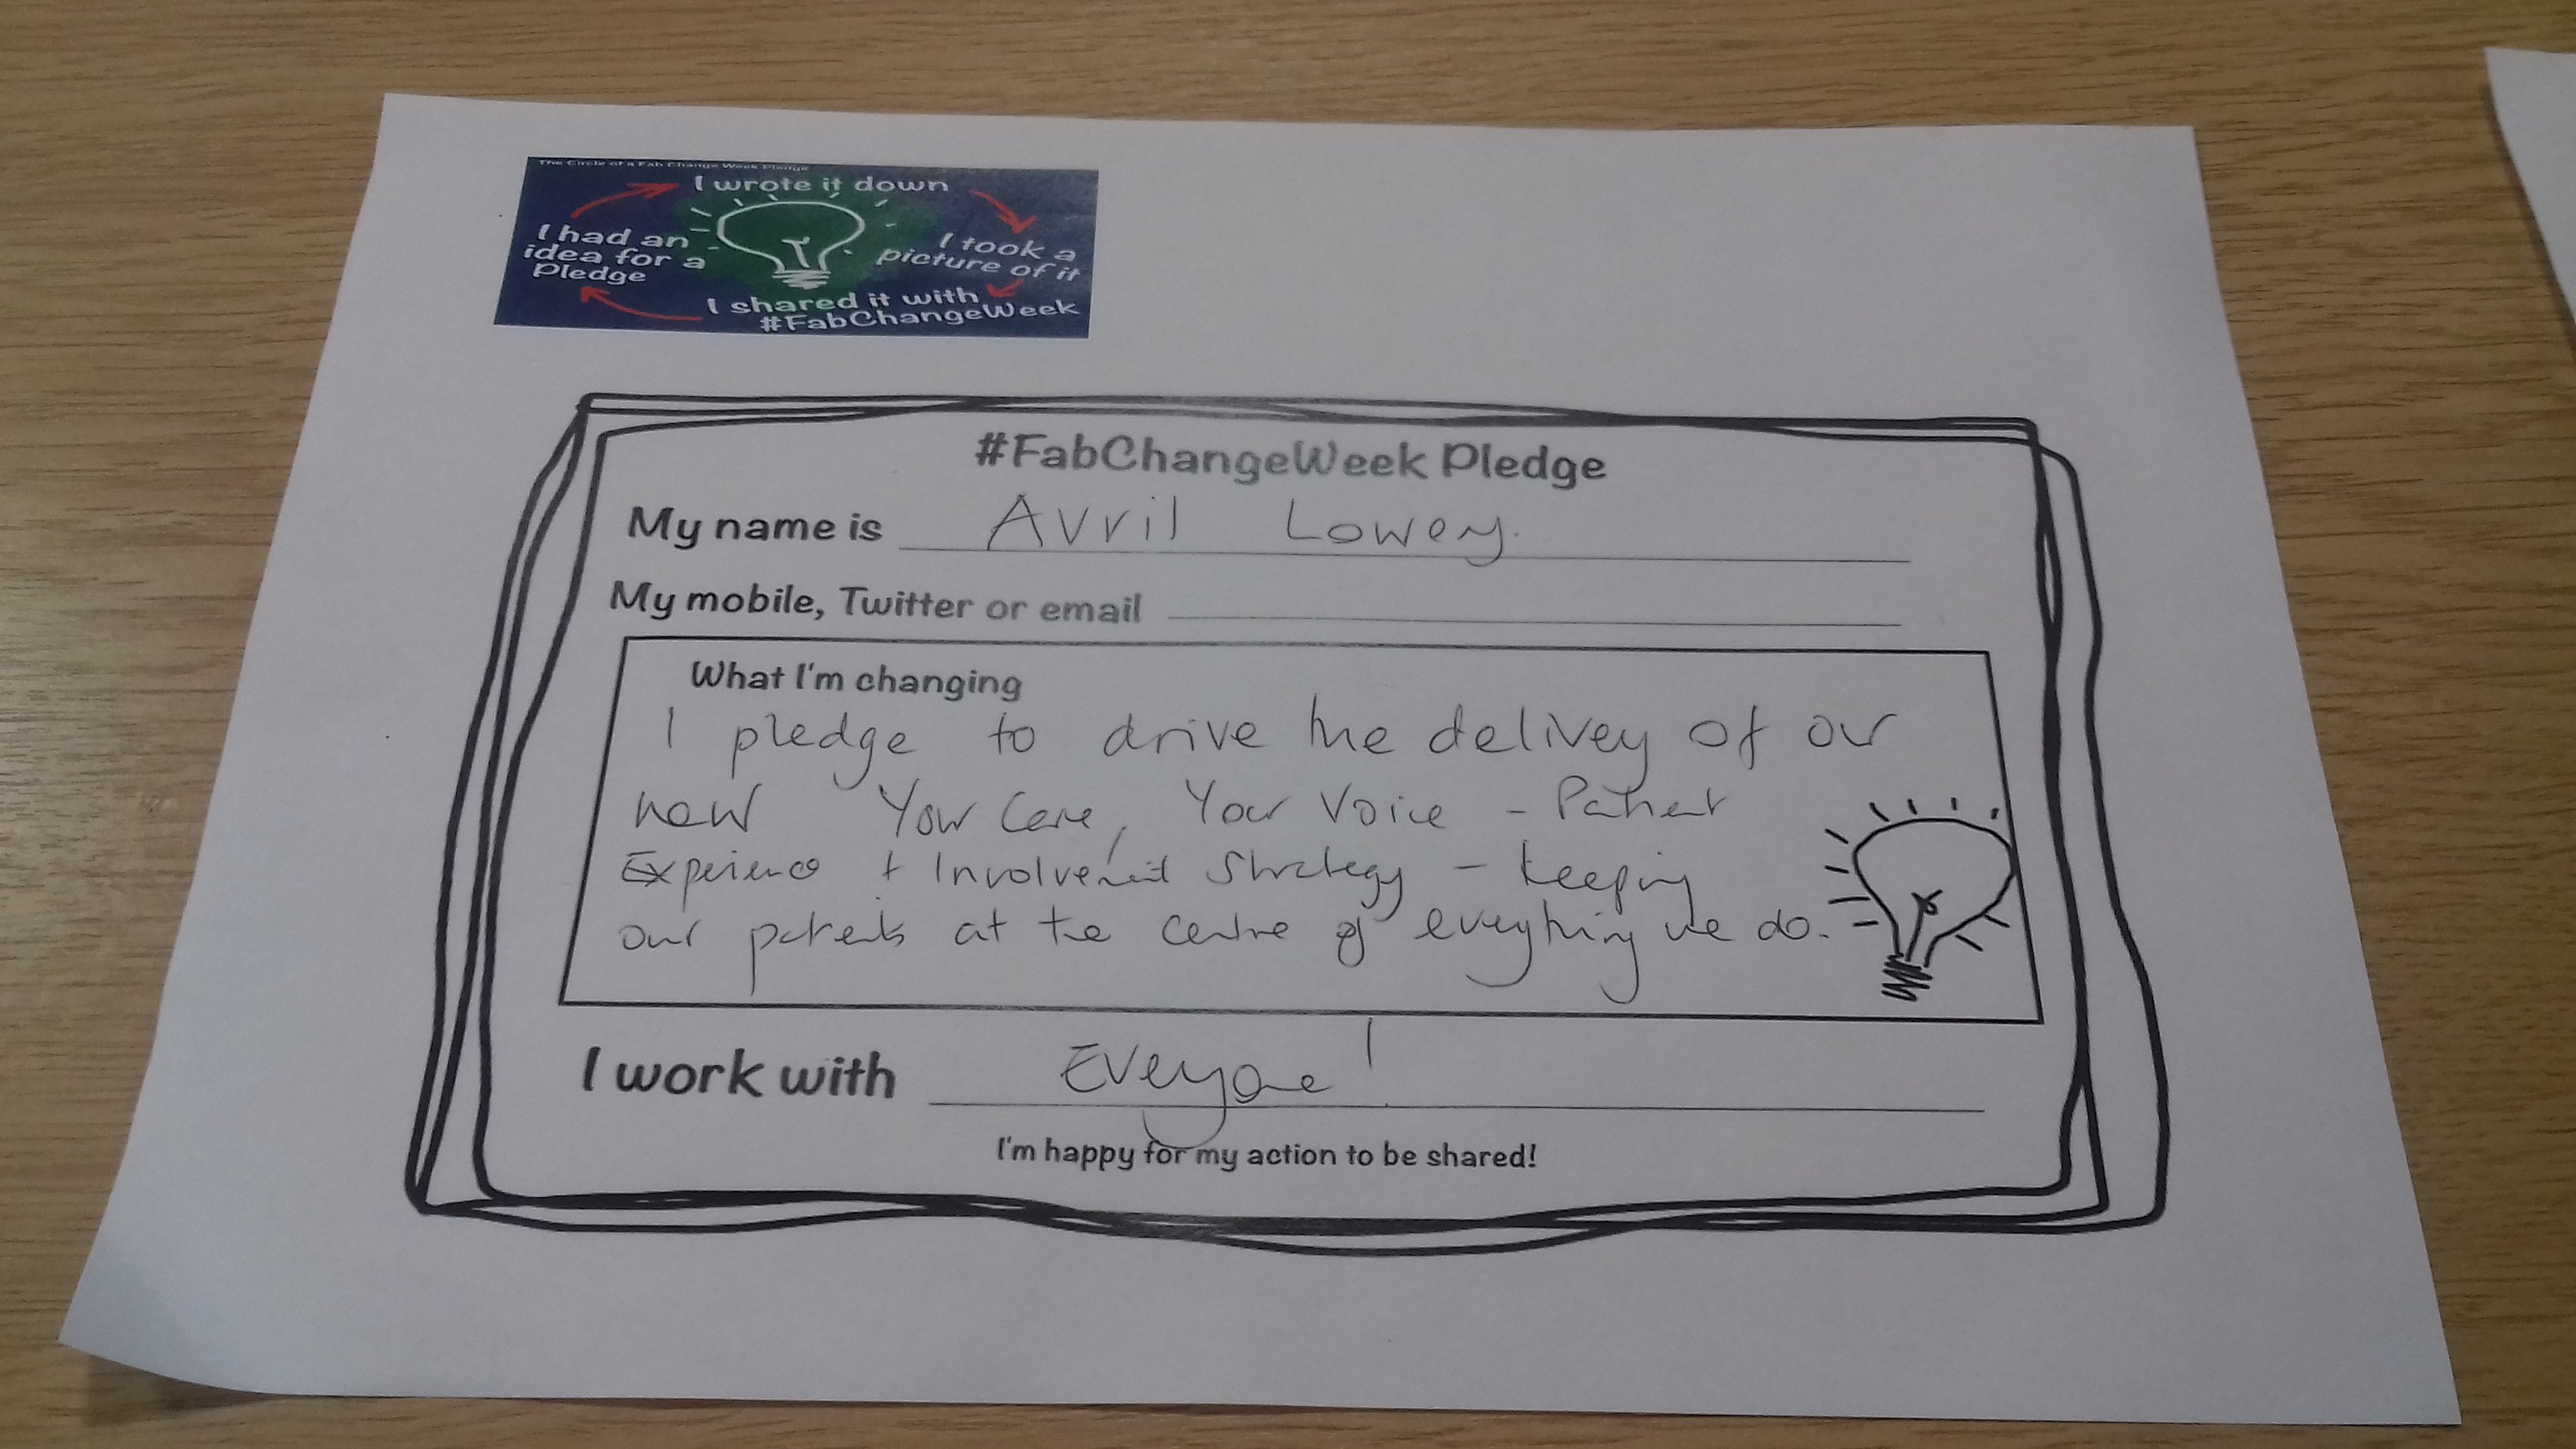 The Circle of a Fab Change Week Pledge
I wrote it down
I had an
idea for a
Pledge
I took a
picture of it
I shared it with
#FabChangeWeek
#FabChangeWeek Pledge
My name is Avril Lowery.
My mobile, Twitter or email
What I'm changing
I pledge to drive the delivey of our
new Your Care, Your Voice - Patient
Experience + Involvement Strategy - keeping
our patients at the centre of everything we do.
I work with Everyone!
I'm happy for my action to be shared!